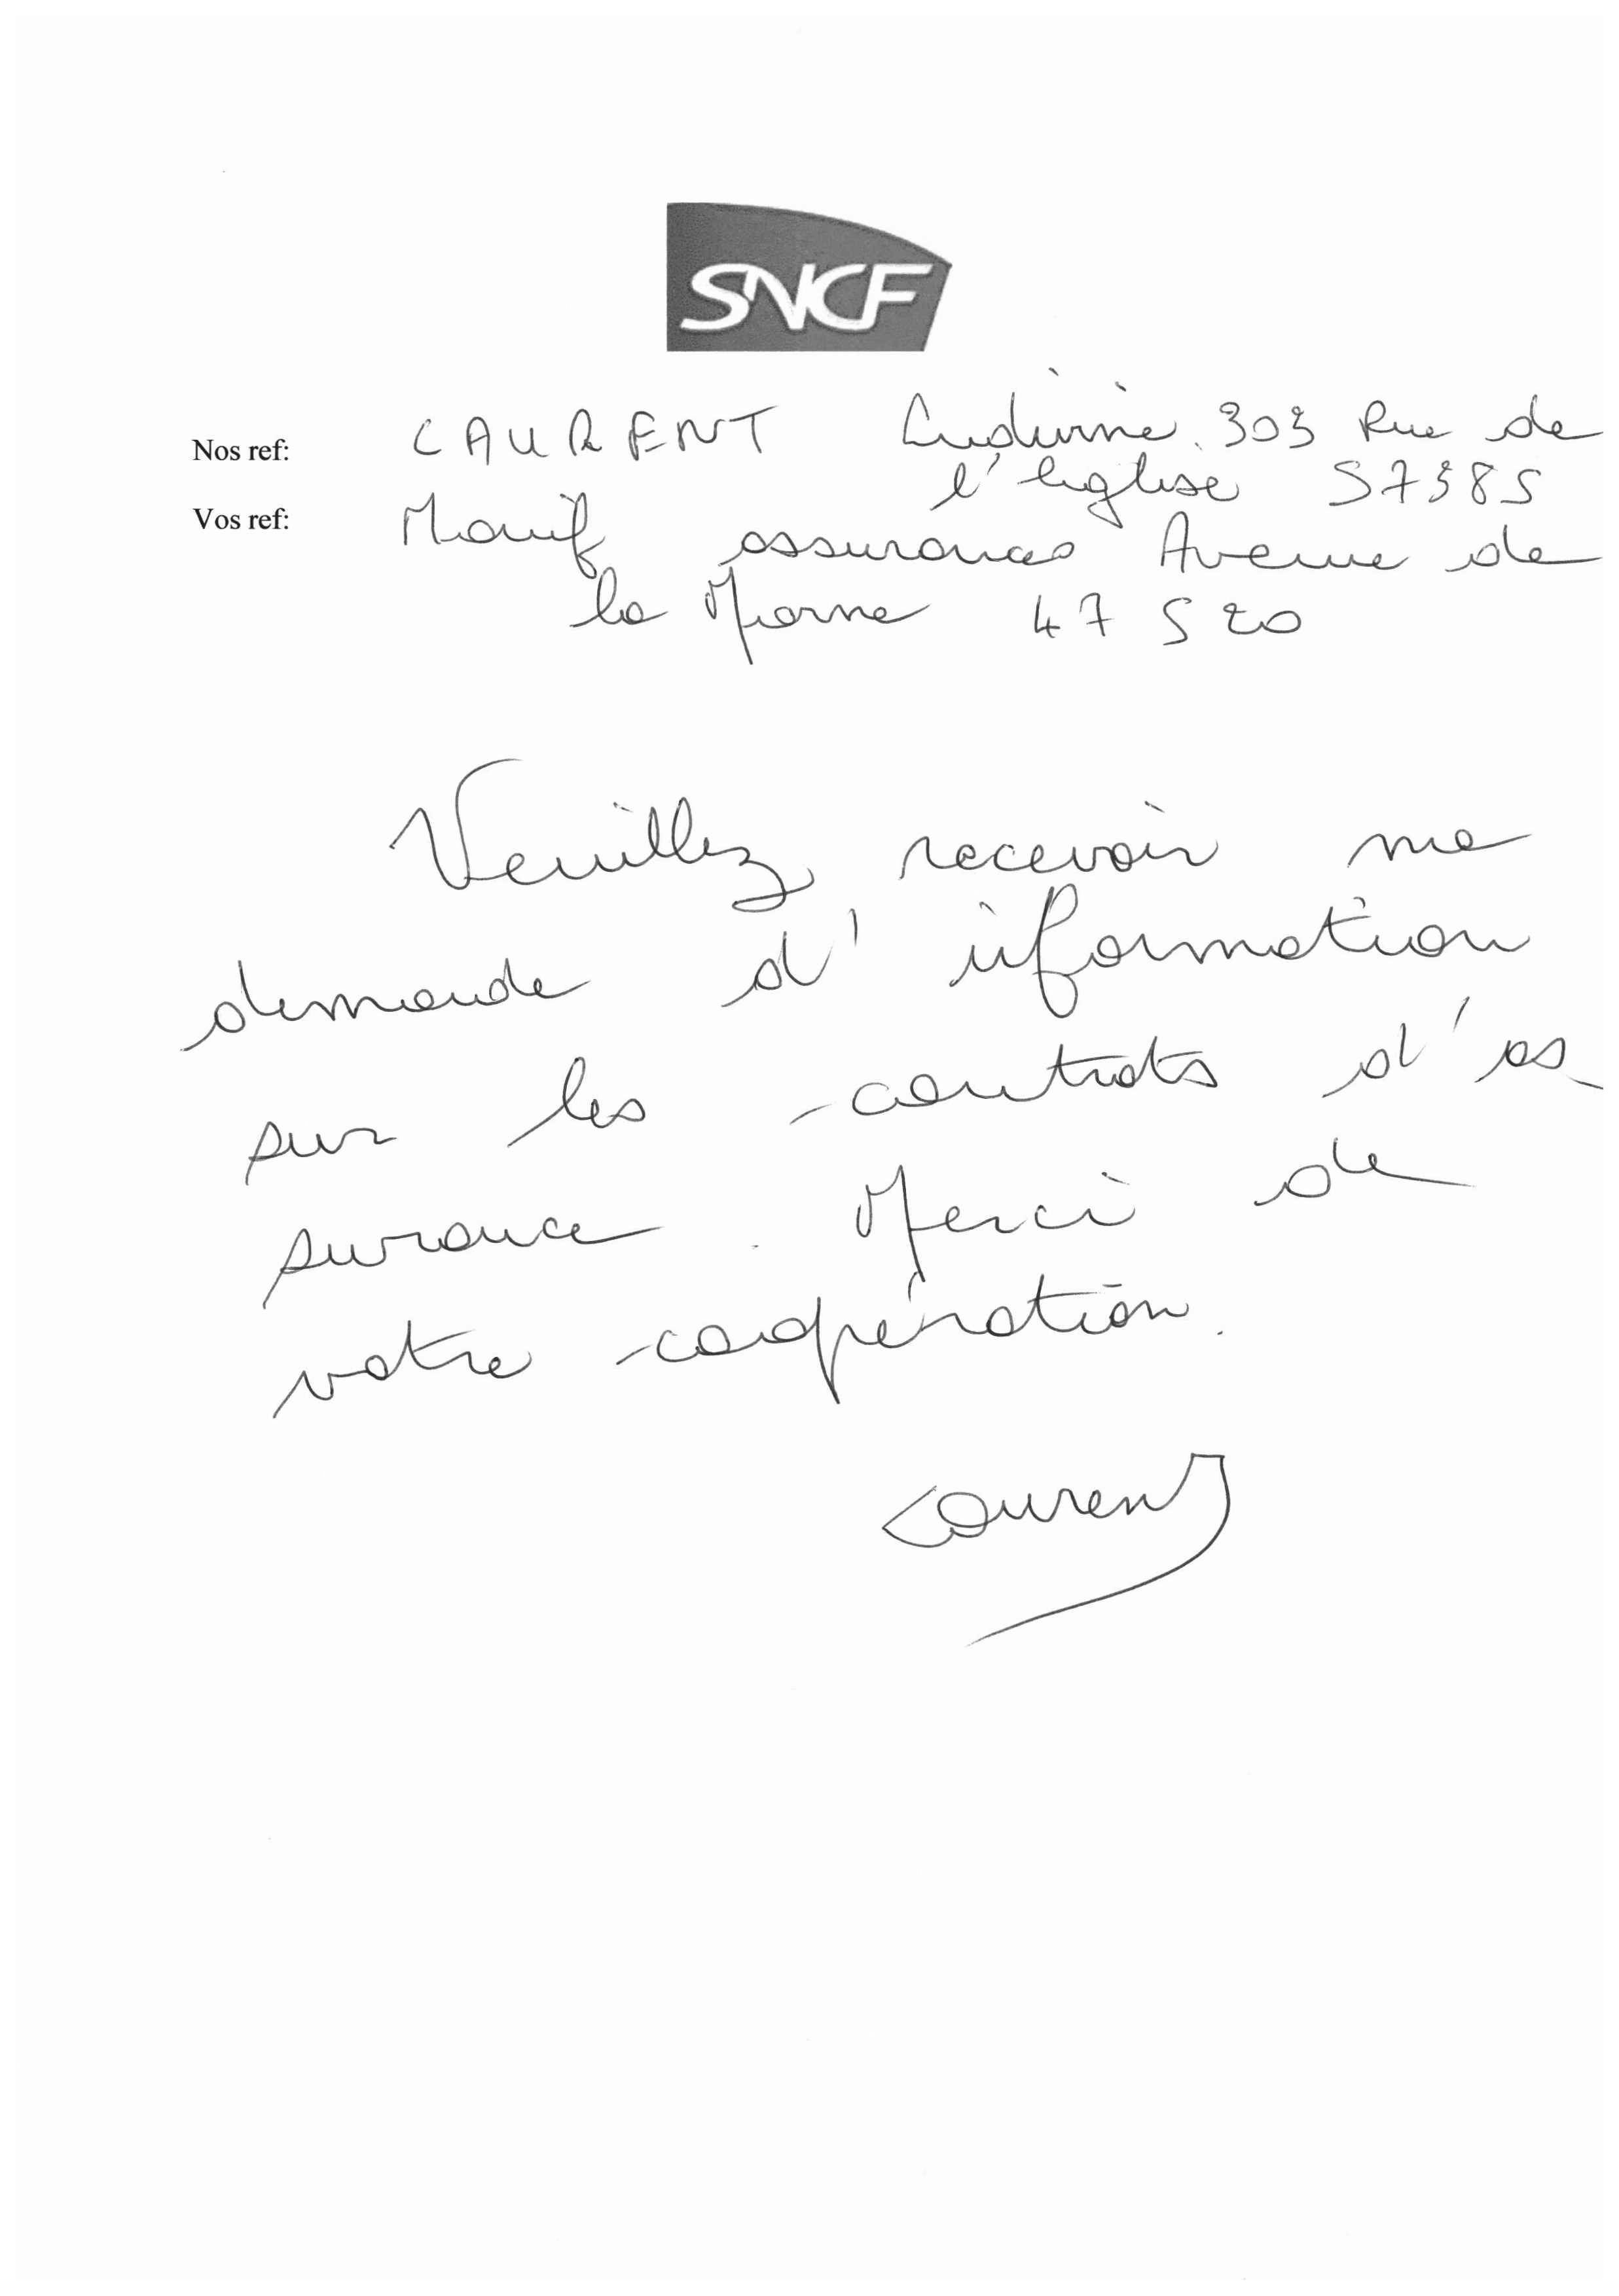 SNCF
Nos ref: LAURENT Ludivine. 303 Rue de
l'église 57385
Vos ref: Manif assurances Avenue de
la Marne 47520
Veuillez recevoir ma
demande d'information
sur les contrats d'as_
surance. Merci de
votre coopération.
Laurent